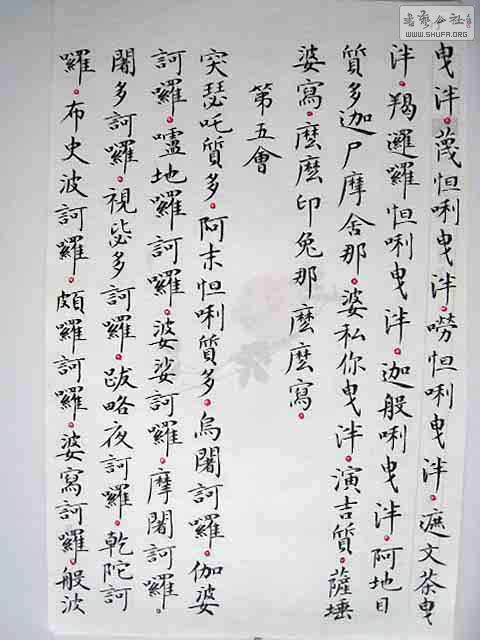 曳泮。蔑怛唎曳泮。嘮怛唎曳泮。遮文茶曳
泮。羯邏羅怛唎曳泮。迦般唎曳泮。阿地目
質多迦尸摩舍那。婆私你曳泮。演吉質。薩埵
婆寫。麼麼印兔那麼麼寫。
第五會
突瑟吒質多。阿末怛唎質多。烏闍訶羅。伽婆
訶羅。嚧地羅訶羅。婆娑訶羅。摩闍訶羅。
闍多訶羅。視毖多訶羅。跋略夜訶羅。乾陀訶
羅。布史波訶羅。頗羅訶羅。婆寫訶羅。般波
書藝公社
WWW.SHUFA.ORG